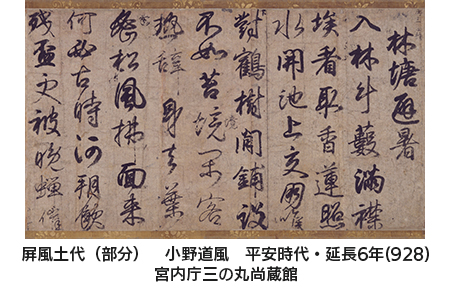 林塘避暑
入林斗藪滿襟
埃看取香蓮照
水開池上交朋唯
對鶴樹間鋪設
境
不如苔 客
熱辭身去葉
松風拂面来
何必古時河朔飲
残盃更被晩蟬催
屏風土代（部分）　小野道風　平安時代・延長6年(928)
宮内庁三の丸尚蔵館